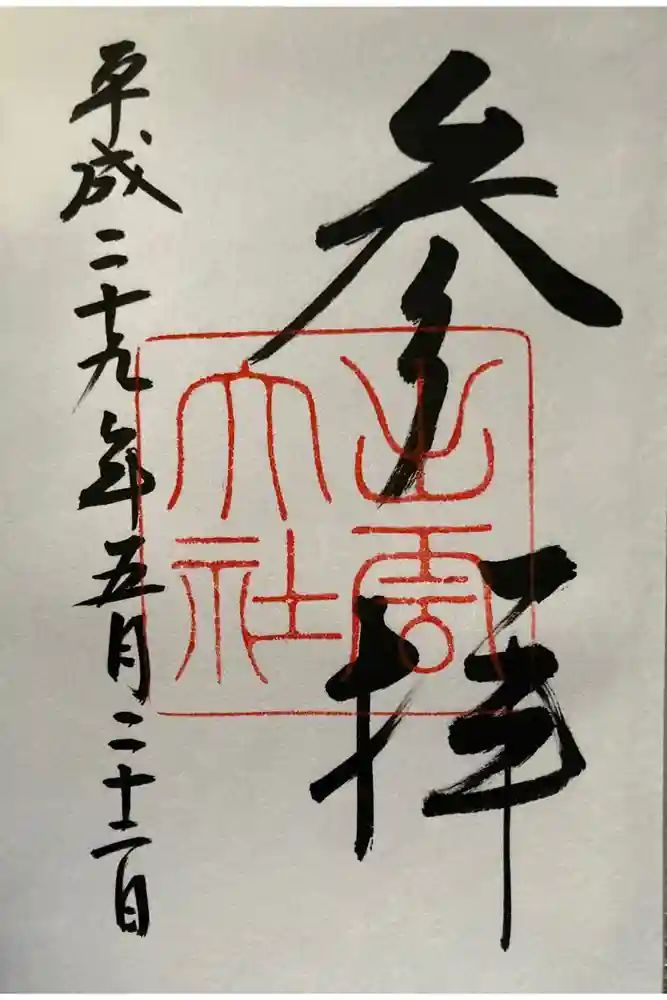 参拝
出雲
大社
平成二十九年五月二十二日